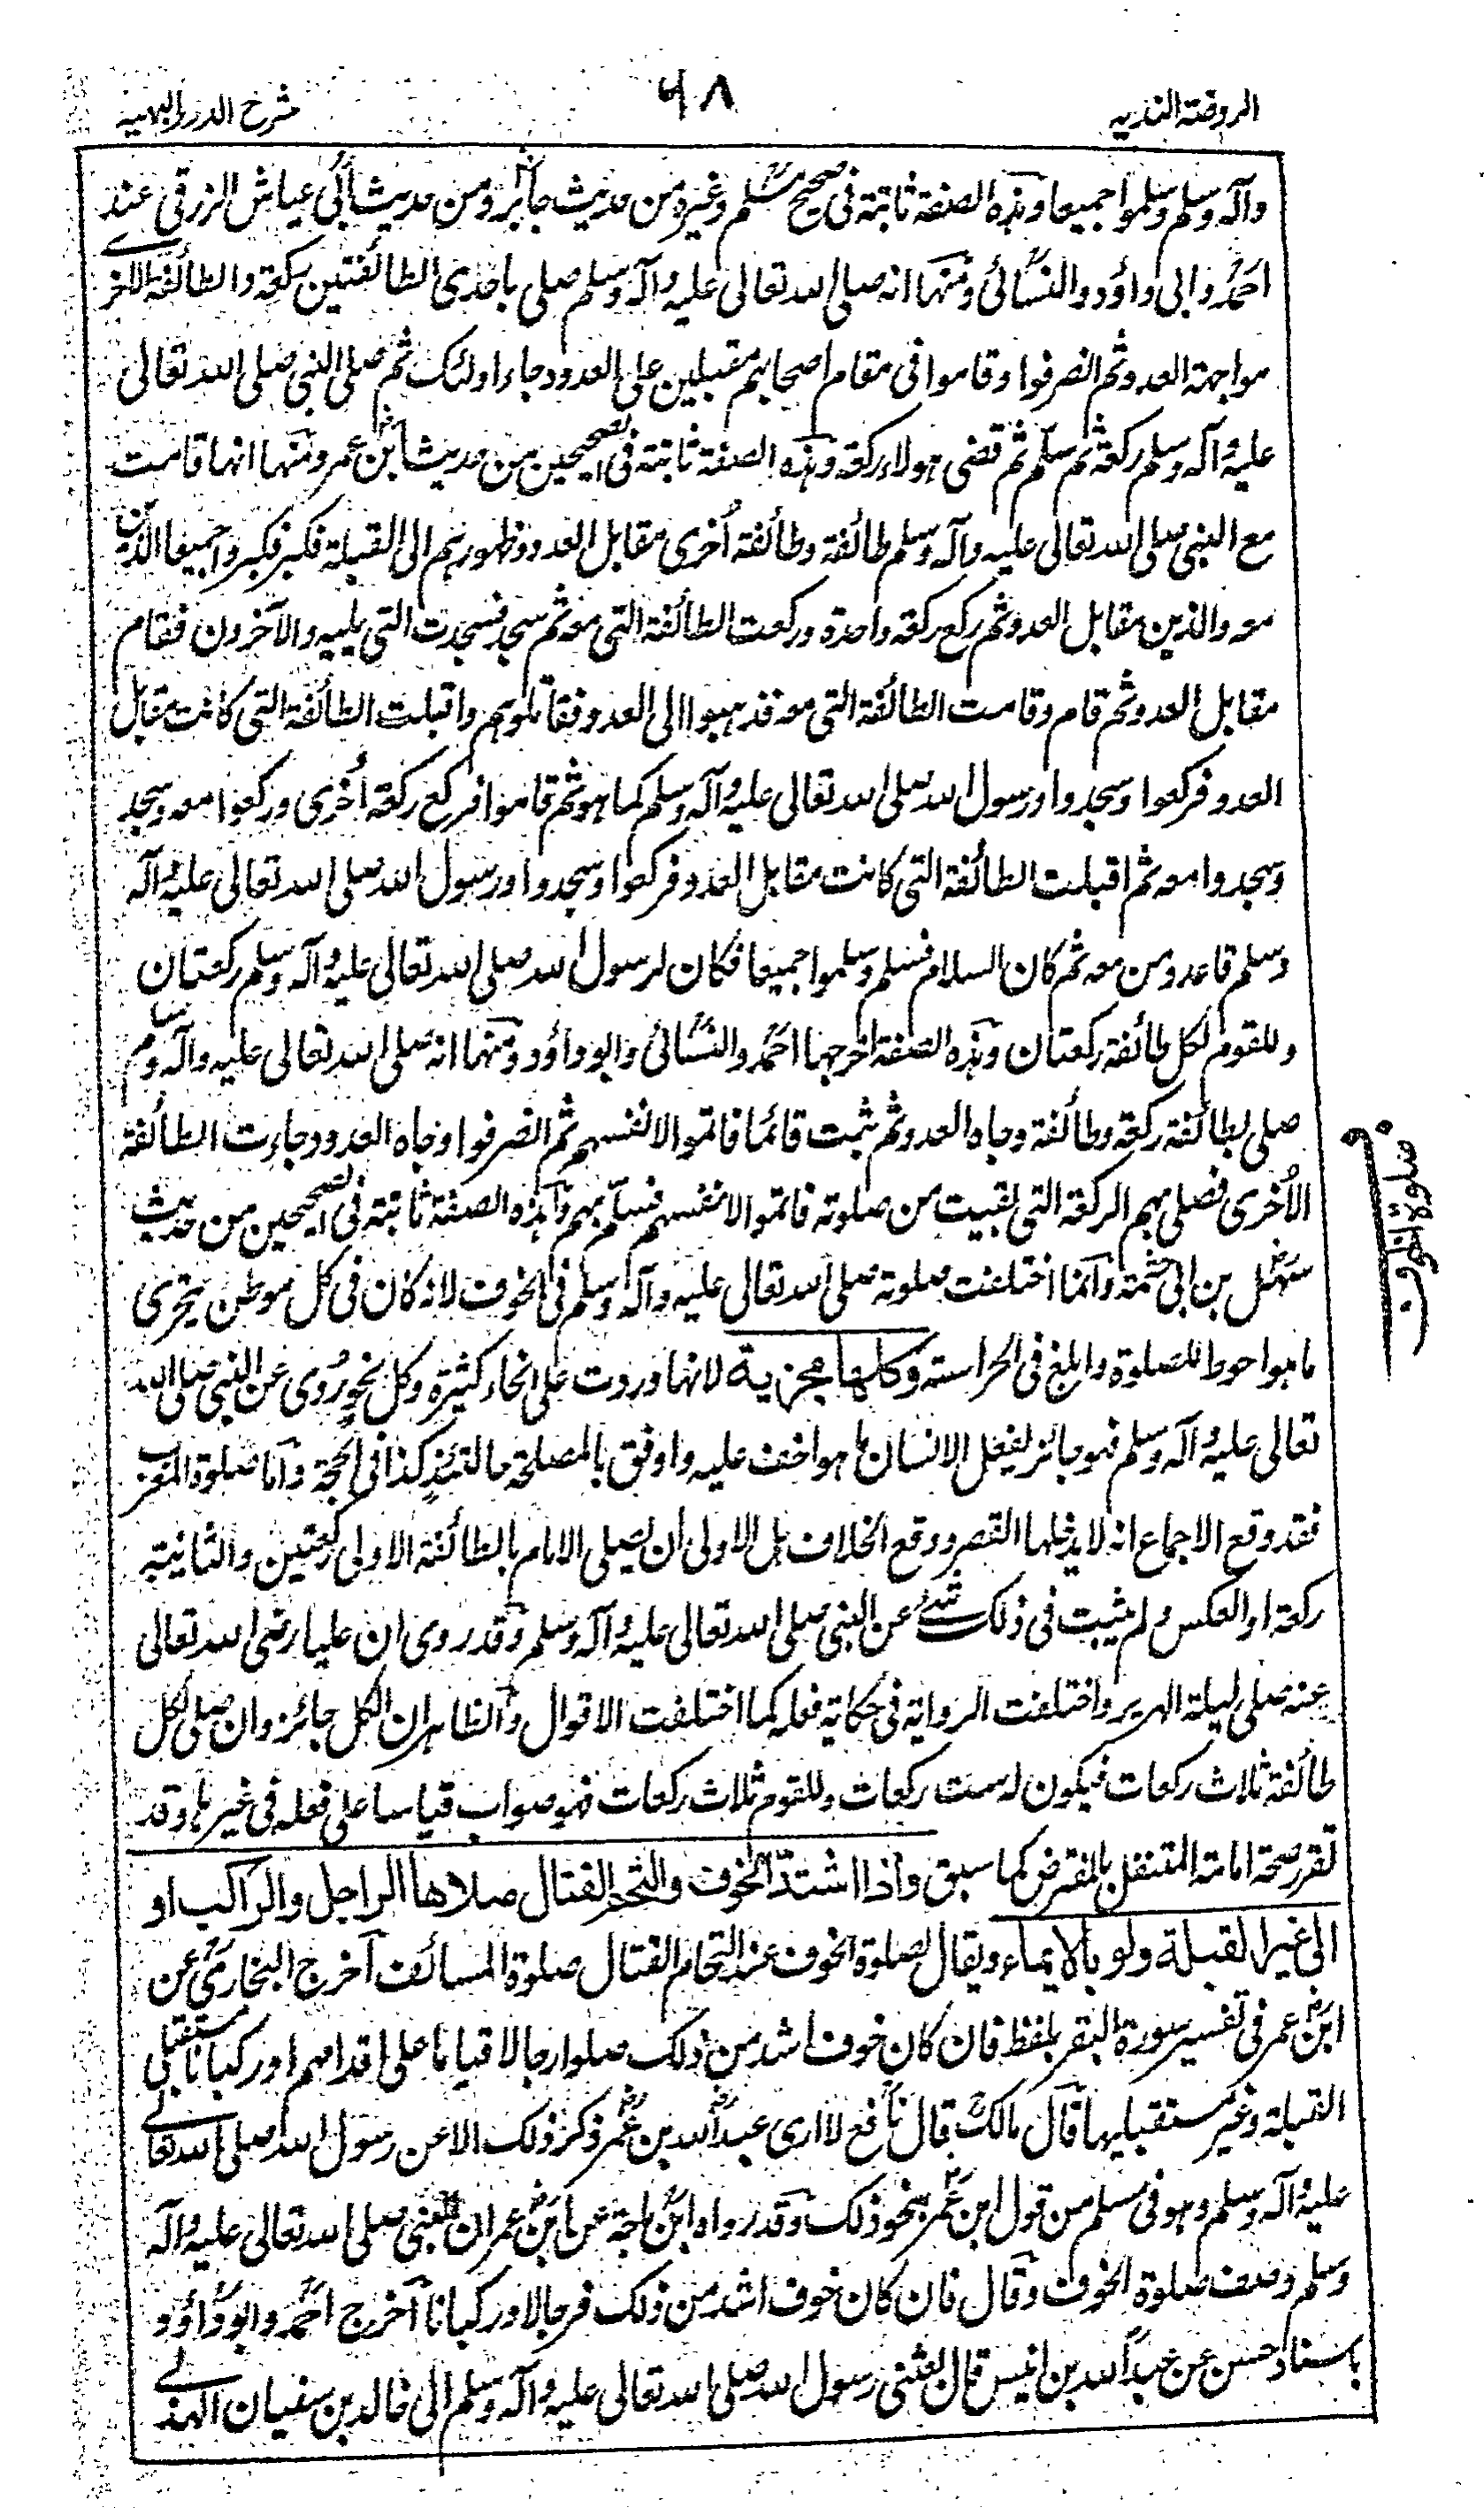 الروضة الندية
٦٨
شرح الدرر البهية
وآله وسلم وسلموا جميعا وهذه الصفة ثابتة فى صحيح مسلم وغيره من حديث جابر ومن حديث أبي عياش الزرقي عند
احمد وابى داؤد والنسائى ومنها انه صلى الله تعالى عليه وآله وسلم صلى باحدى الطائفتين ركعة والطائفة الاخرى
مواجهة العدو ثم انصرفوا وقاموا فى مقام اصحابهم مقبلين على العدو وجاء اولئك ثم صلى النبي صلى الله تعالى
عليه وآله وسلم ركعة ثم سلم ثم قضى هولاء ركعة وهذه الصفة ثابتة فى الصحيحين من حديث ابن عمر ومنها انها قامت
مع النبى صلى الله تعالى عليه وآله وسلم طائفة وطائفة أخرى مقابل العدو وظهورهم الى القبلة فكبر فكبروا جميعا الذين
معه والذين مقابل العدو ثم ركع ركعة واحدة وركعت الطائفة التى معه ثم سجد فسجدت التى يليه والآخرون فقام
مقابل العدو ثم قام وقامت الطائفة التى معه فذهبوا الى العدو فقابلوهم واقبلت الطائفة التى كانت مقابل
العدو فركعوا وسجدوا ورسول الله صلى الله تعالى عليه وآله وسلم كما هو ثم قاموا فركع ركعة أخرى وركعوا معه وسجد
وسجدوا معه ثم اقبلت الطائفة التى كانت مقابل العدو فركعوا وسجدوا ورسول الله صلى الله تعالى عليه وآله
وسلم قاعد ومن معه ثم كان السلام فسلم وسلموا جميعا فكان لرسول الله صلى الله تعالى عليه وآله وسلم ركعتان
وللقوم لكل طائفة ركعتان وهذه الصفة اخرجها احمد والنسائى وابو داؤد ومنها انه صلى الله تعالى عليه وآله وسلم
صلى بطائفة ركعة وطائفة وجاه العدو ثم ثبت قائما فاتموا لانفسهم ثم انصرفوا وجاه العدو وجاءت الطائفة
الأخرى فصلى بهم الركعة التى بقيت من صلوته فاتموا لانفسهم فسلم بهم وهذه الصفة ثابتة فى الصحيحين من حديث
سهل بن ابى حثمة وانما اختلفت صلوته صلى الله تعالى عليه وآله وسلم فى الخوف لانه كان فى كل موطن يتحرى
ما هو احوط للصلوة وابلغ فى الحراسة وكلها مجزية لانها وردت على انحاء كثيرة وكل نحو روى عن النبى صلى الله
تعالى عليه وآله وسلم فهو جائز يفعل الانسان ما هو اخف عليه واوفق بالمصلحة حالتئذ كذا فى الحجة وأما صلوة المغرب
فقد وقع الاجماع انه لا يدخلها القصر ووقع الخلاف هل الاولى ان يصلى الامام بالطائفة الاولى ركعتين والثانية
ركعة او العكس ولم يثبت فى ذلك شئ عن النبى صلى الله تعالى عليه وآله وسلم وقد روى ان عليا رضى الله تعالى
عنه صلى ليلة الهرير واختلفت الرواية فى حكاية فعله كما اختلفت الاقوال والظاهر ان الكل جائز وان صلى لكل
طائفة ثلاث ركعات فيكون له ست ركعات وللقوم ثلاث ركعات فهو صواب قياسا على فعله فى غيرها وقد
تقرر صحة امامة المتنفل بالمفترض كما سبق وإذا اشتد الخوف والتحم القتال صلاها الراجل والراكب او
الى غير القبلة ولو بالايماء ويقال لصلوة الخوف عند التحام القتال صلوة المسائف أخرج البخارى عن
ابن عمر فى تفسير سورة البقر بلفظ فان كان خوف اشد من ذلك صلوا رجالا قياما على اقدامهم او ركبانا مستقبلى
القبلة وغير مستقبليها قال مالك قال نافع لا ارى عبد الله بن عمر ذكر ذلك الا عن رسول الله صلى الله تعالى
عليه وآله وسلم وهو فى مسلم من قول ابن عمر بنحو ذلك وقد رواه ابن ماجة عن ابن عمر ان النبى صلى الله تعالى عليه وآله
وسلم وصف صلوة الخوف وقال فان كان خوف اشد من ذلك فرجالا وركبانا أخرج احمد وابو داؤد
باسناد حسن عن عبد الله بن انيس قال بعثنى رسول الله صلى الله تعالى عليه وآله وسلم الى خالد بن سفيان الهذلى
صلوة الخوف